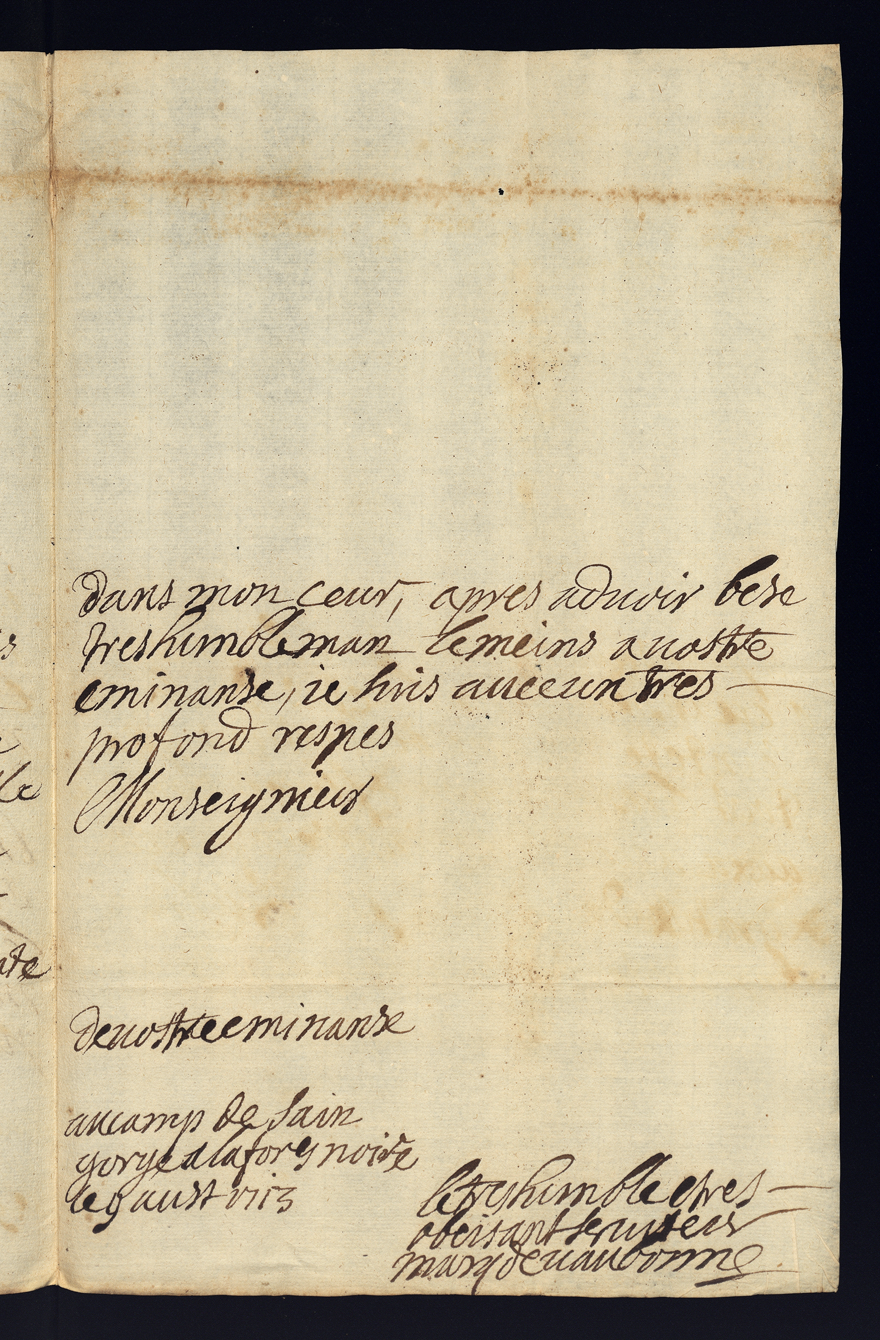 dans mon ceur, apres aduoir bese
treshumbleman lemeins a uostre
eminanse, ie suis auecun tres
profond respes
Monseignieur
deuostre eminanse
aucamp de sain
gorge alafores noire
le 9 aust 1713
le treshumble etres
obeisant seruiteur
marq de uaubonne